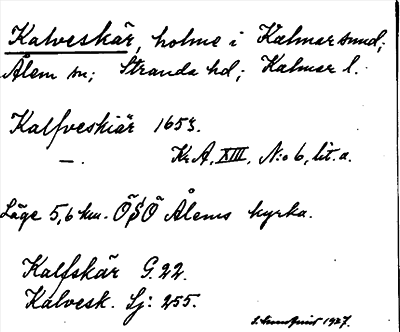 Kalveskär, holme i Kalmarsund;
Ålem sn; Stranda hd; Kalmar l.
Kalfveskiär 1653.
—. Kr A, XIII, N:o 6, lit. a.
Läge 5,6 km. ÖSÖ Ålems kyrka.
Kalfskär G. 22.
Kalvesk. Sj: 255.
1927.